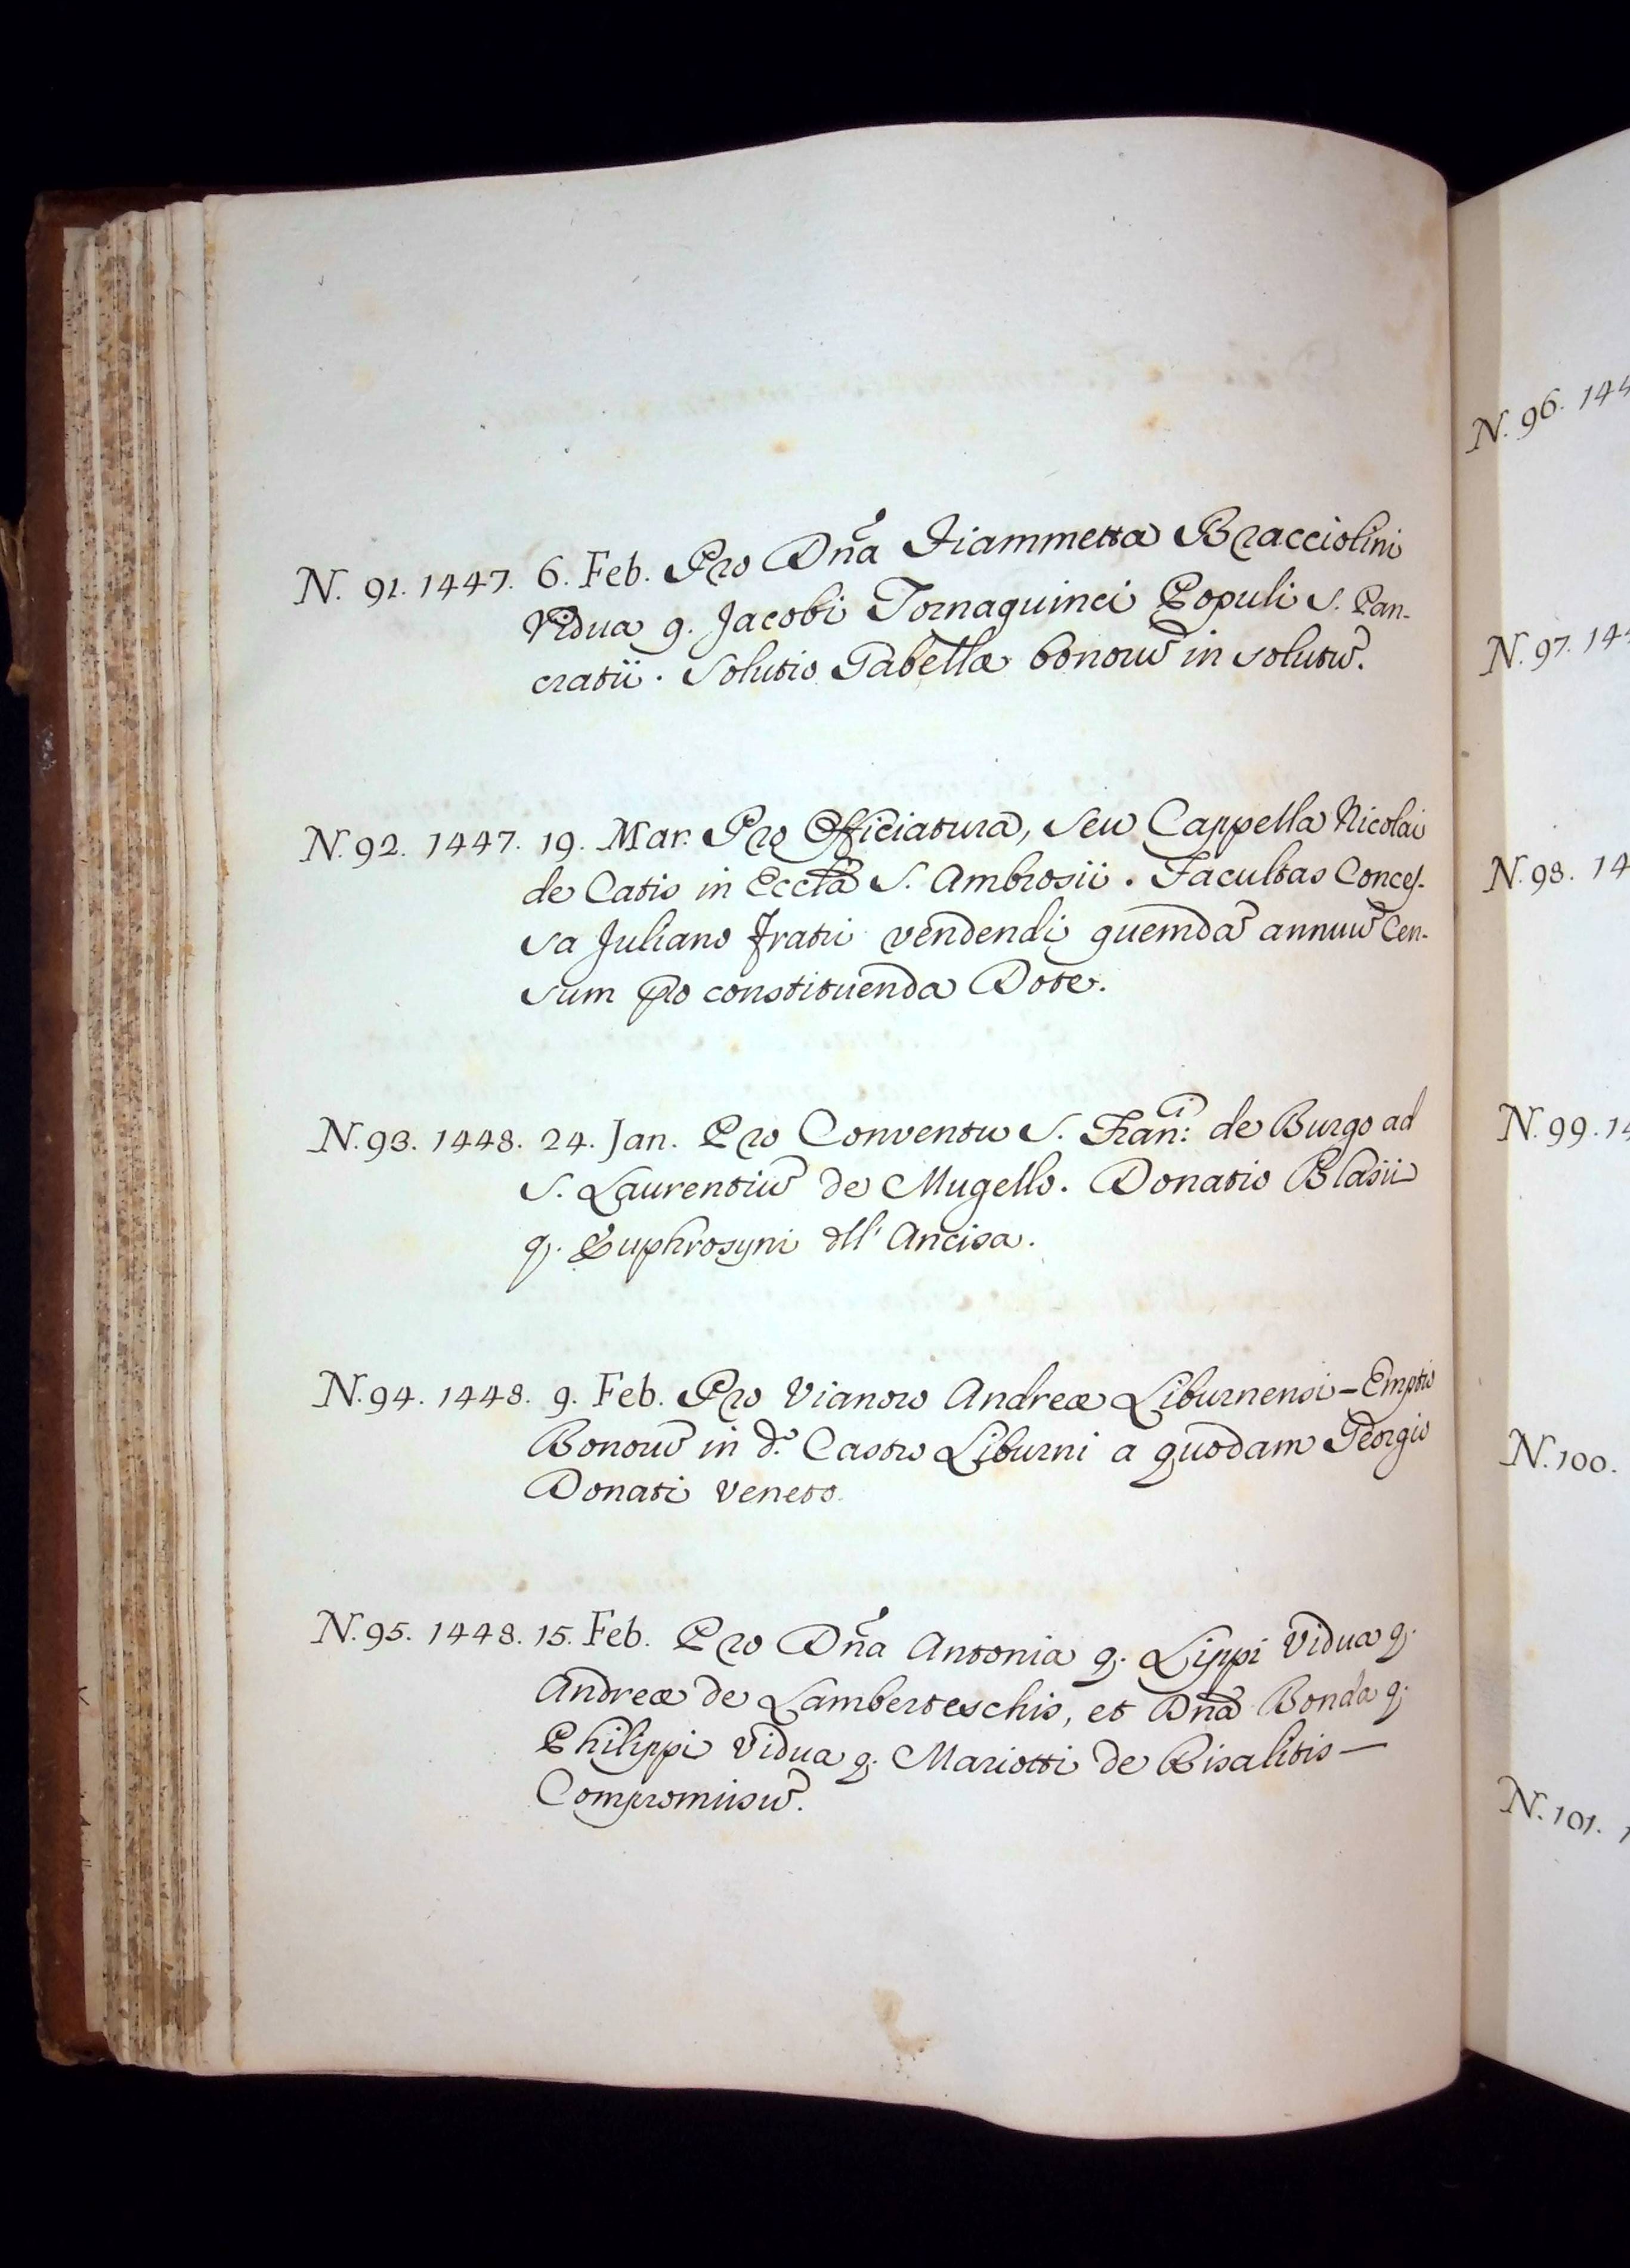 N. 91. 1447. 6. Feb. Pro Dña Fiammetta Bracciolini
Vidua q. Jacobi Tornaquinci Populi S. Pan-
cratii. Solutio Tabellæ bonorũ in solutũ.
N. 92. 1447. 19. Mar. Pro Officiatura, seu Cappella Nicolai
de Catis in Eccl̃a S. Ambrosii. Facultas Conces-
sa Juliano Fratri vendendi quemdã annuũ Cen-
sum pro constituenda Dote.
N. 93. 1448. 24. Jan. Pro Conventu S. Fran:ci de Burgo ad
S. Laurentiũ de Mugello. Donatio Blasii
q. Euphrosyni dll' Ancisa.
N. 94. 1448. 9. Feb. Pro Vianoro Andreæ Liburnensi – Emptio
Bonorũ in d.o Castro Liburni a quodam Georgio
Donati Veneto.
N. 95. 1448. 15. Feb. Pro Dña Antonia q. Lippi Vidua q.
Andreæ de Lamberteschis, et Dña Bonda q.
Philippi Vidua q. Mariotti de Risalitis –
Compromissũ.
N. 96. 144
N. 97. 144
N. 98. 14
N. 99. 14
N. 100.
N. 101. 1